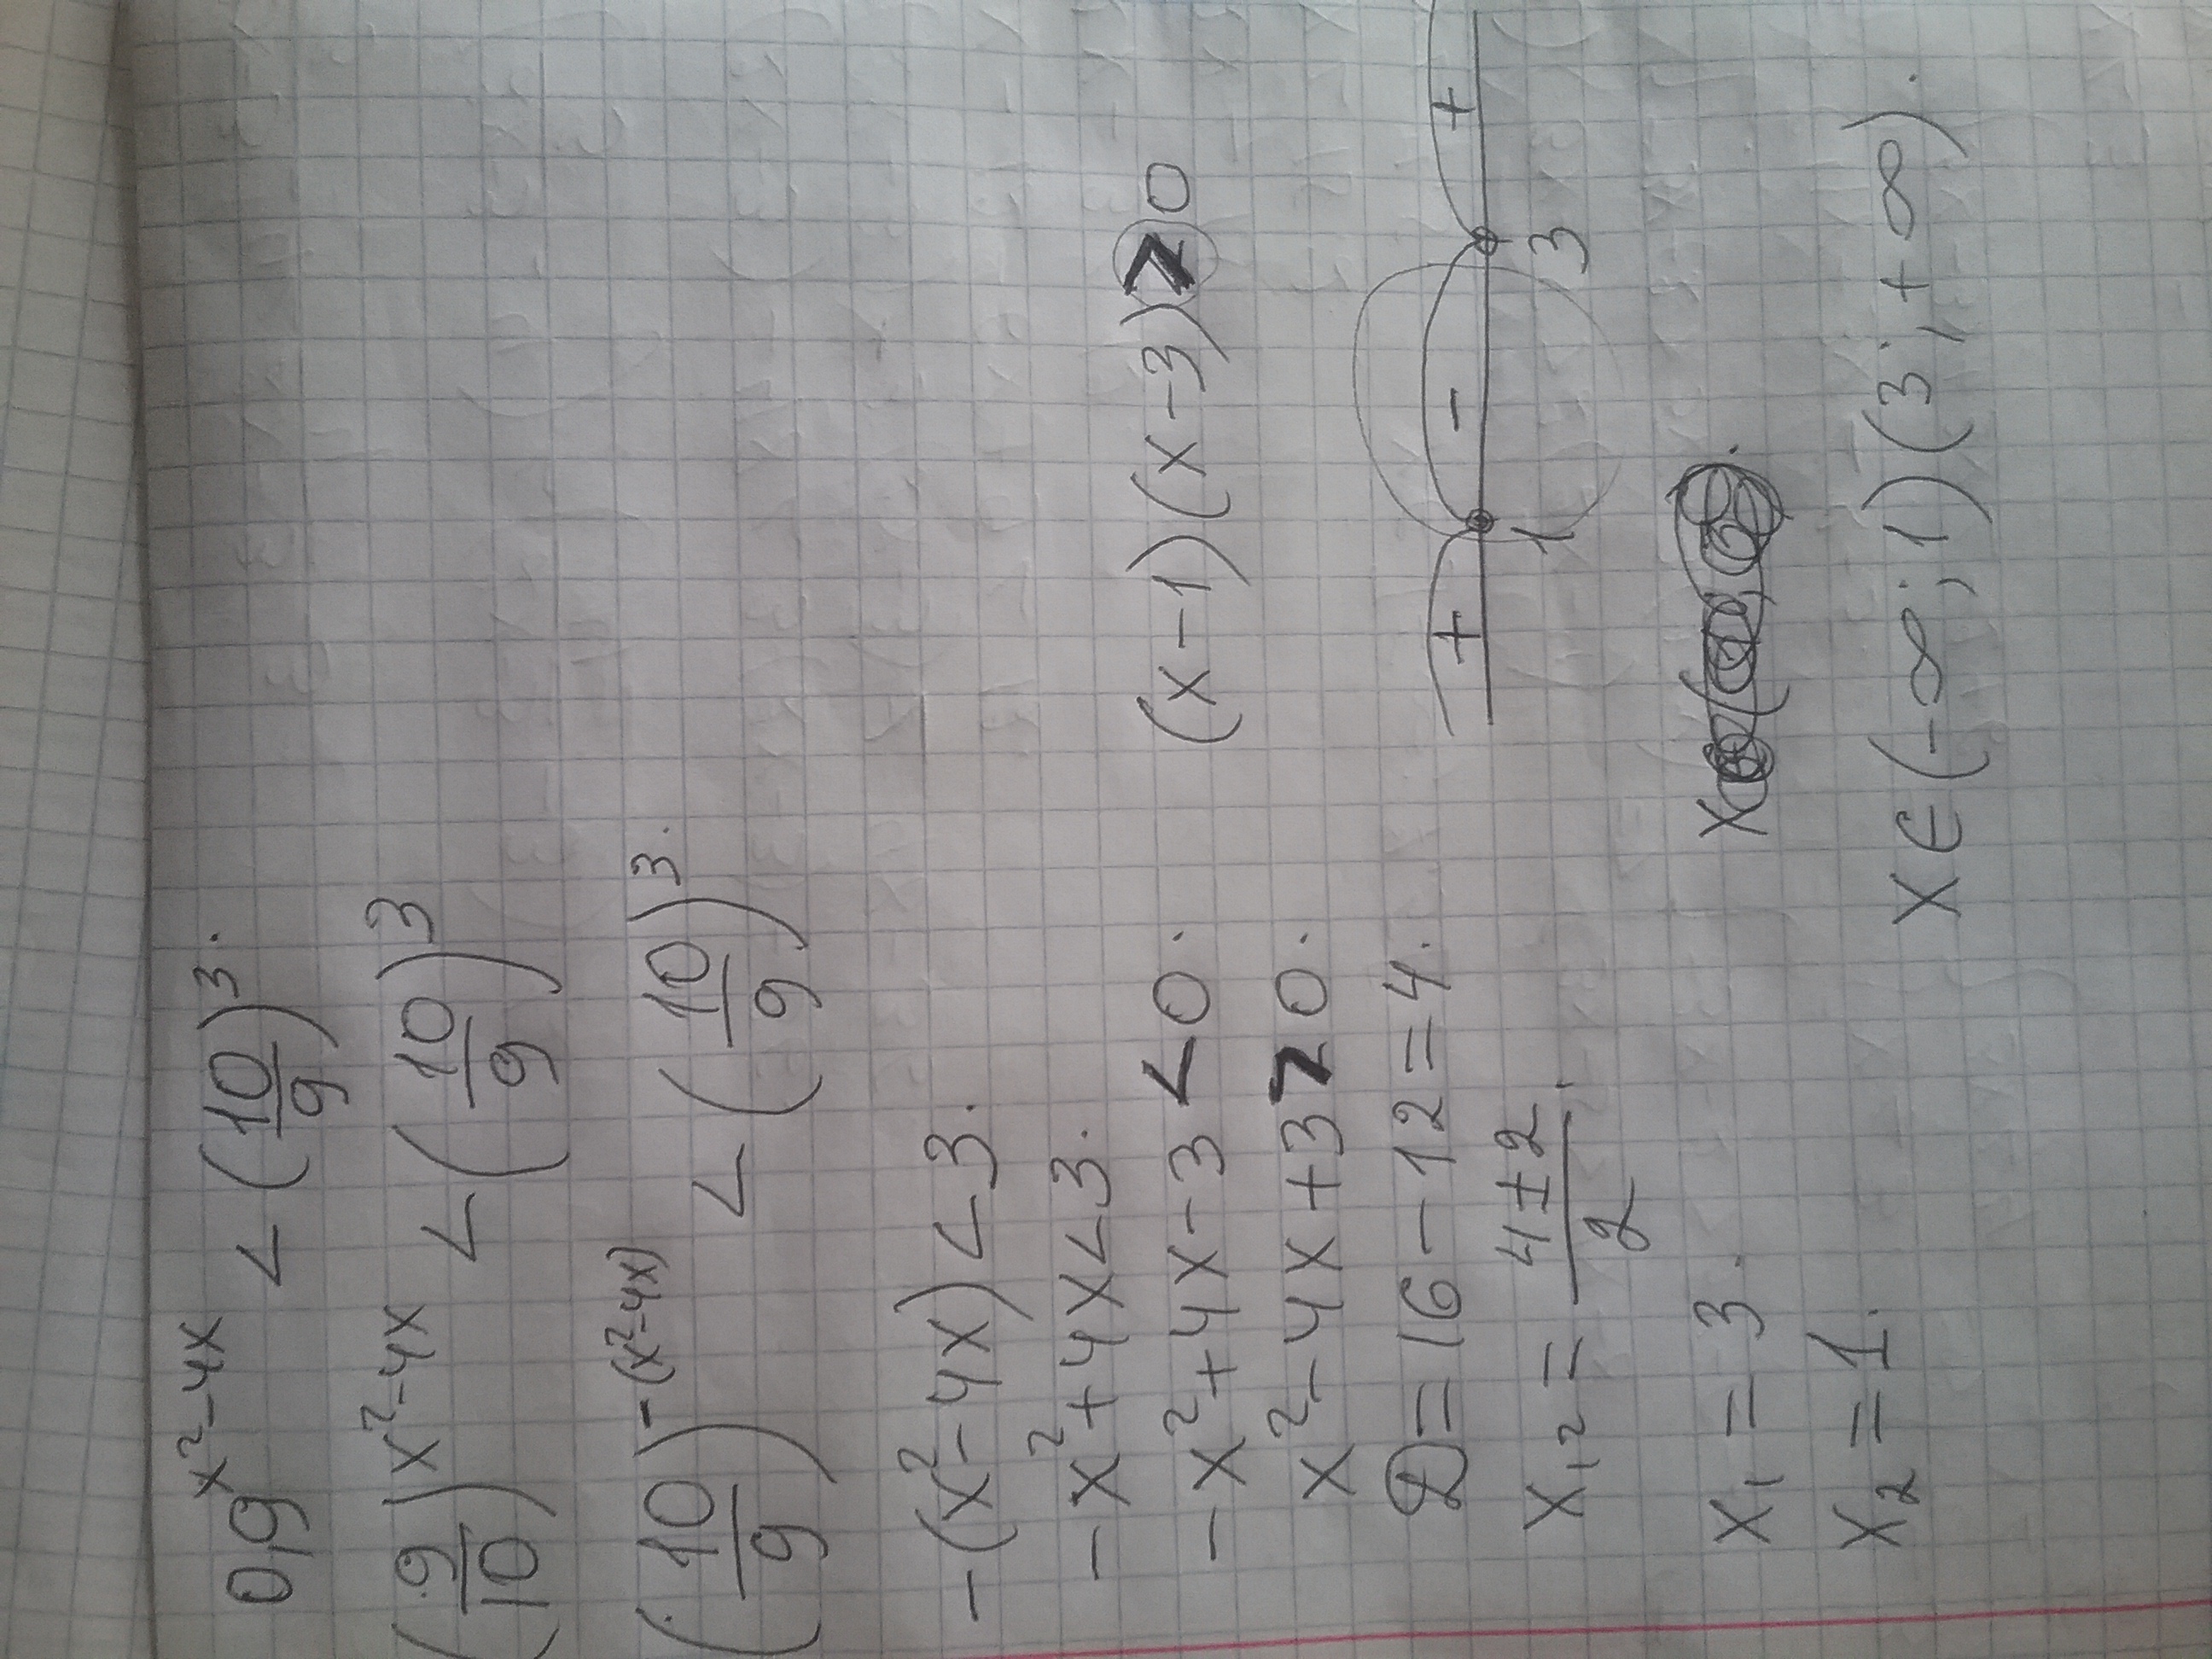 0,9^{x²-4x} < (10/9)³.
(9/10)^{x²-4x} < (10/9)³
(10/9)^{-(x²-4x)} < (10/9)³.
-(x²-4x)<3.
-x²+4x<3.
-x²+4x-3<0.
x²-4x+3>0.
D=16-12=4.
x₁₂ = (4±2)/2.
x₁ = 3.
x₂ = 1.
(x-1)(x-3)>0
+ - +
1 3
x
x∈(-∞;1)(3;+∞).